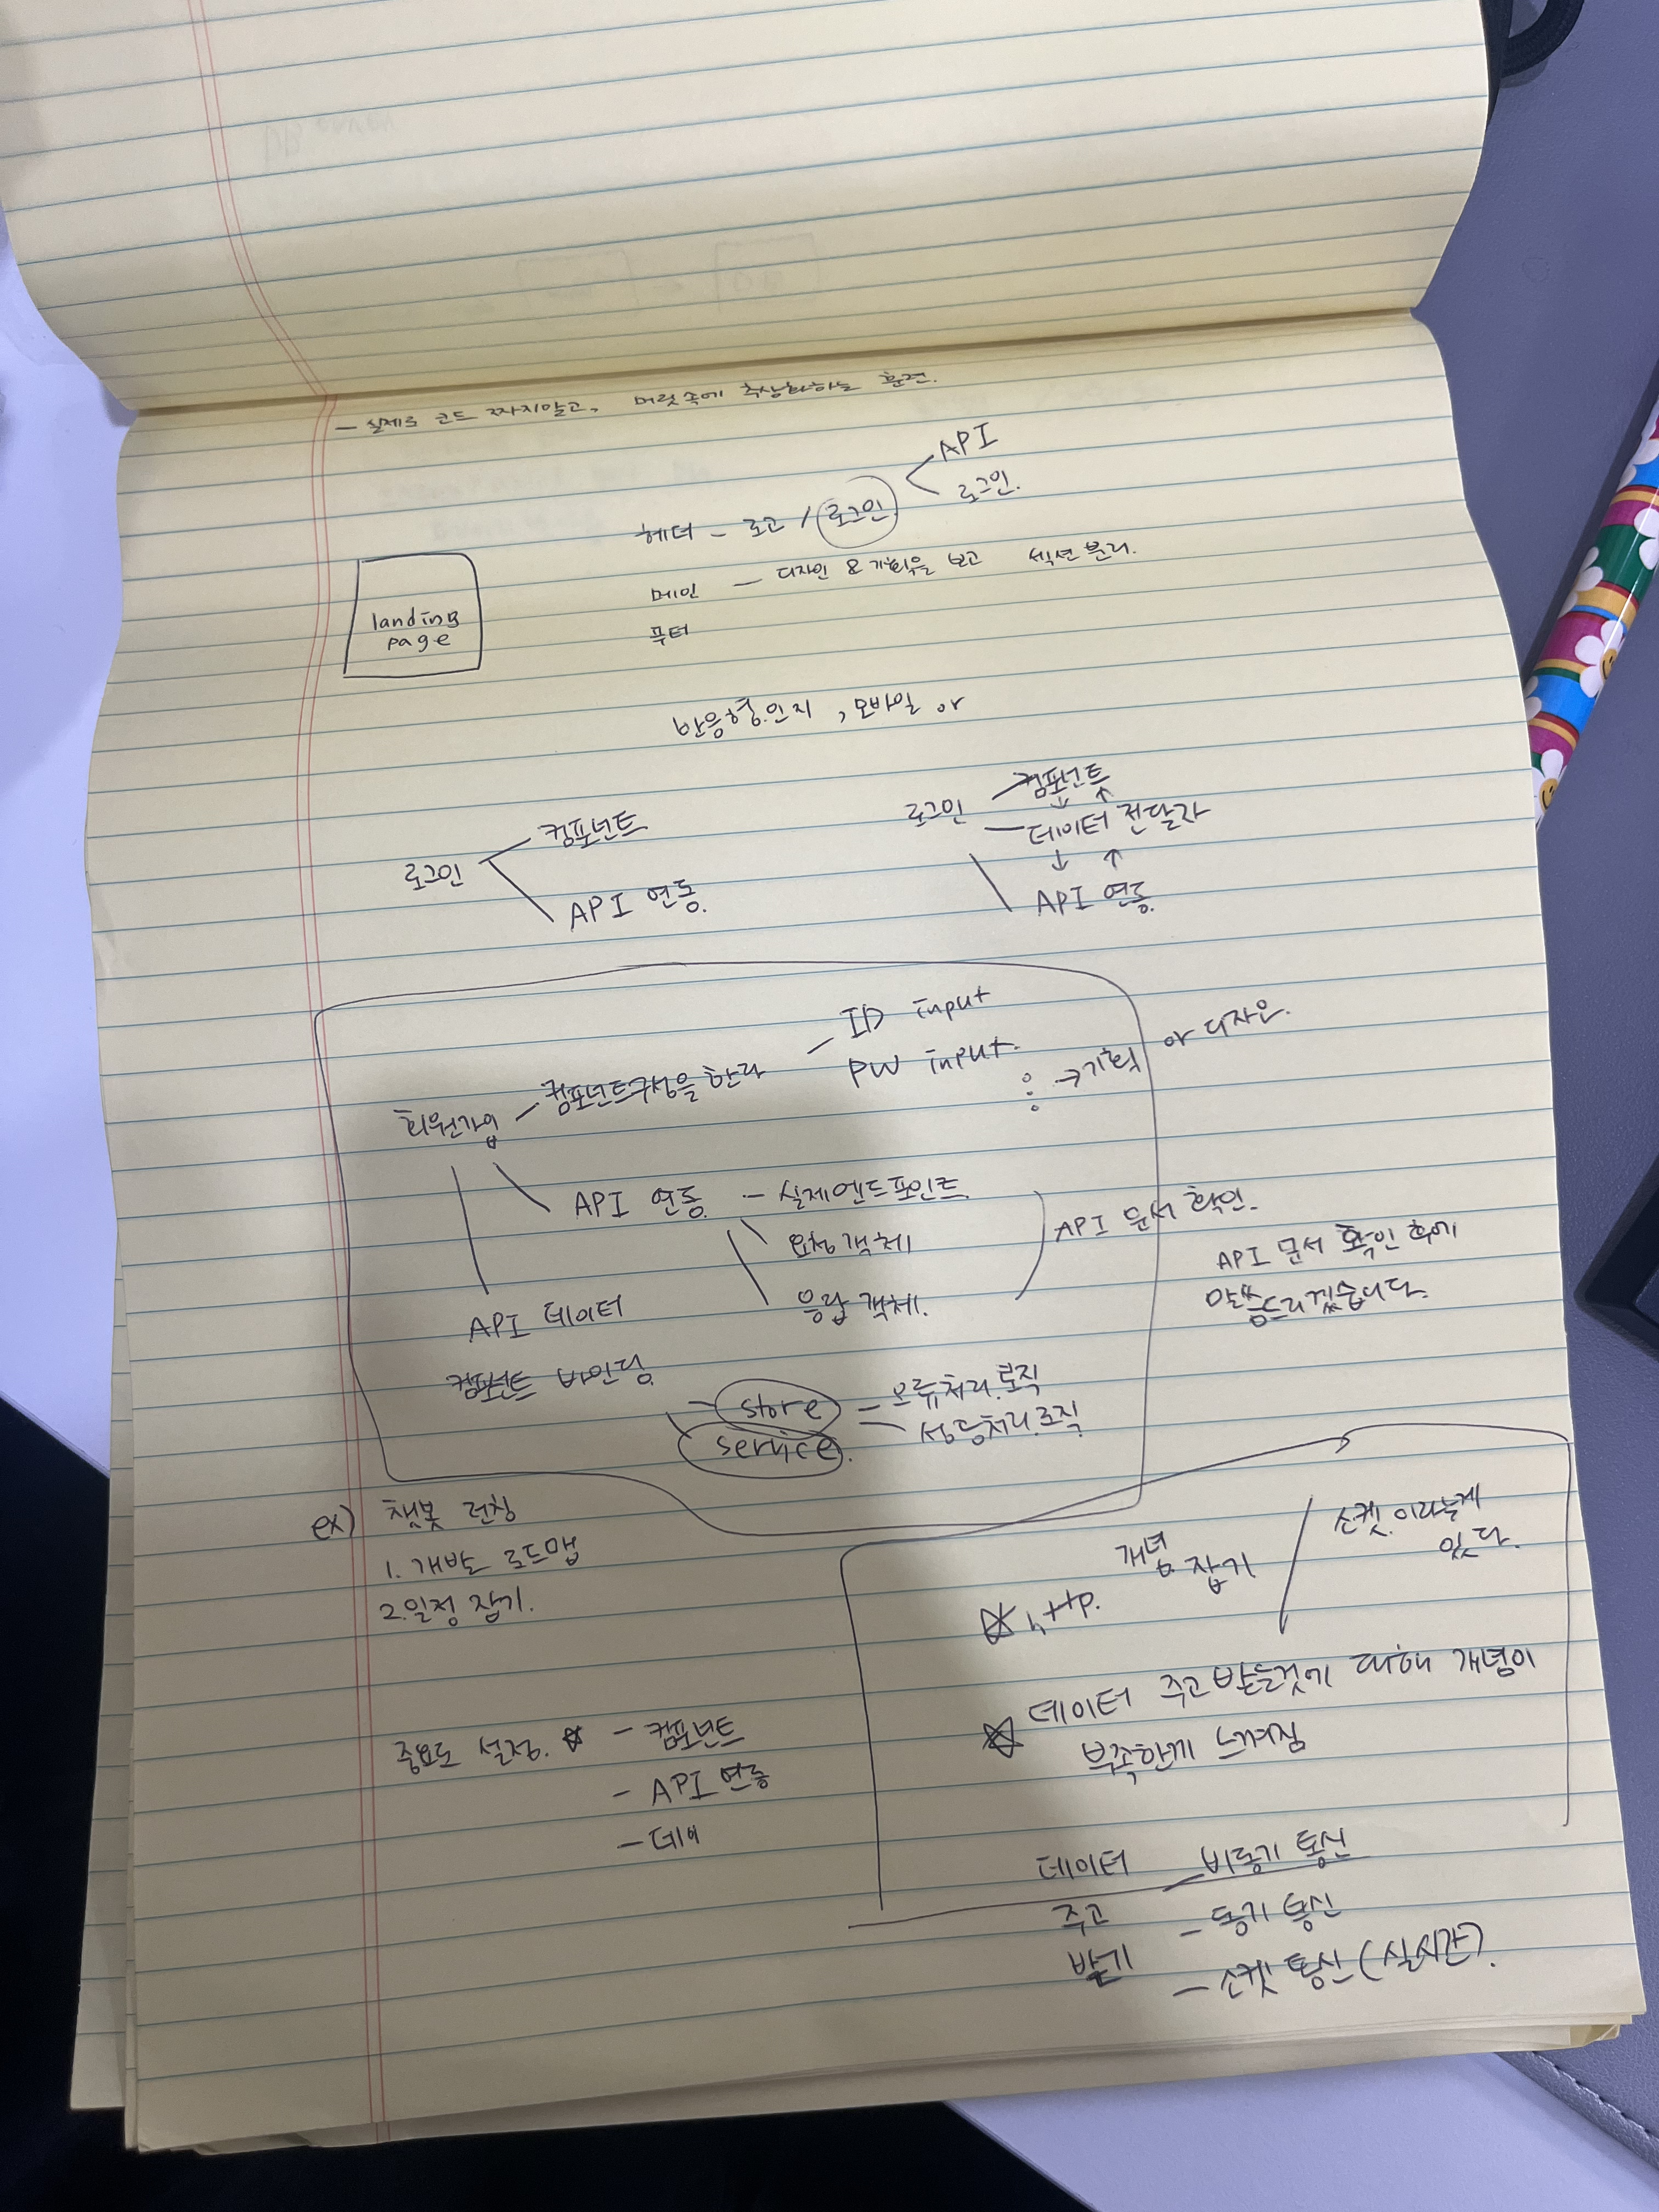 - 실제로 코드 짜지말고, 머릿속에 추상화하는 훈련.
API
헤더 - 로고 / 로그인
로그인.
landing
page
메인 - 디자인 & 기획을 보고 섹션 분리.
푸터
반응형인지, 모바일 or
로그인
컴포넌트
API 연동.
로그인
컴포넌트
↓ ↑
데이터 전달자
↓ ↑
API 연동.
회원가입 - 컴포넌트구성을 한다
- ID input
PW input.
→ 기획 or 디자인.
API 연동. - 실제엔드포인트.
요청 객체
응답 객체.
API 문서 확인.
API 문서 확인 후에
말씀드리겠습니다.
API 데이터
컴포넌트 바인딩.
- store - 오류처리.로직
service. - 성공처리.로직
ex) 챗봇 런칭
1. 개발 로드맵
2. 일정 잡기.
중요도 설정. ☆ - 컴포넌트
- API 연동
- 데이
개념 잡기
소켓.이라는게
있다.
☆ http.
☆ 데이터 주고받는것에 대해 개념이
부족한게 느껴짐
데이터
주고
받기
- 비동기 통신
- 동기 통신
- 소켓 통신 (실시간).